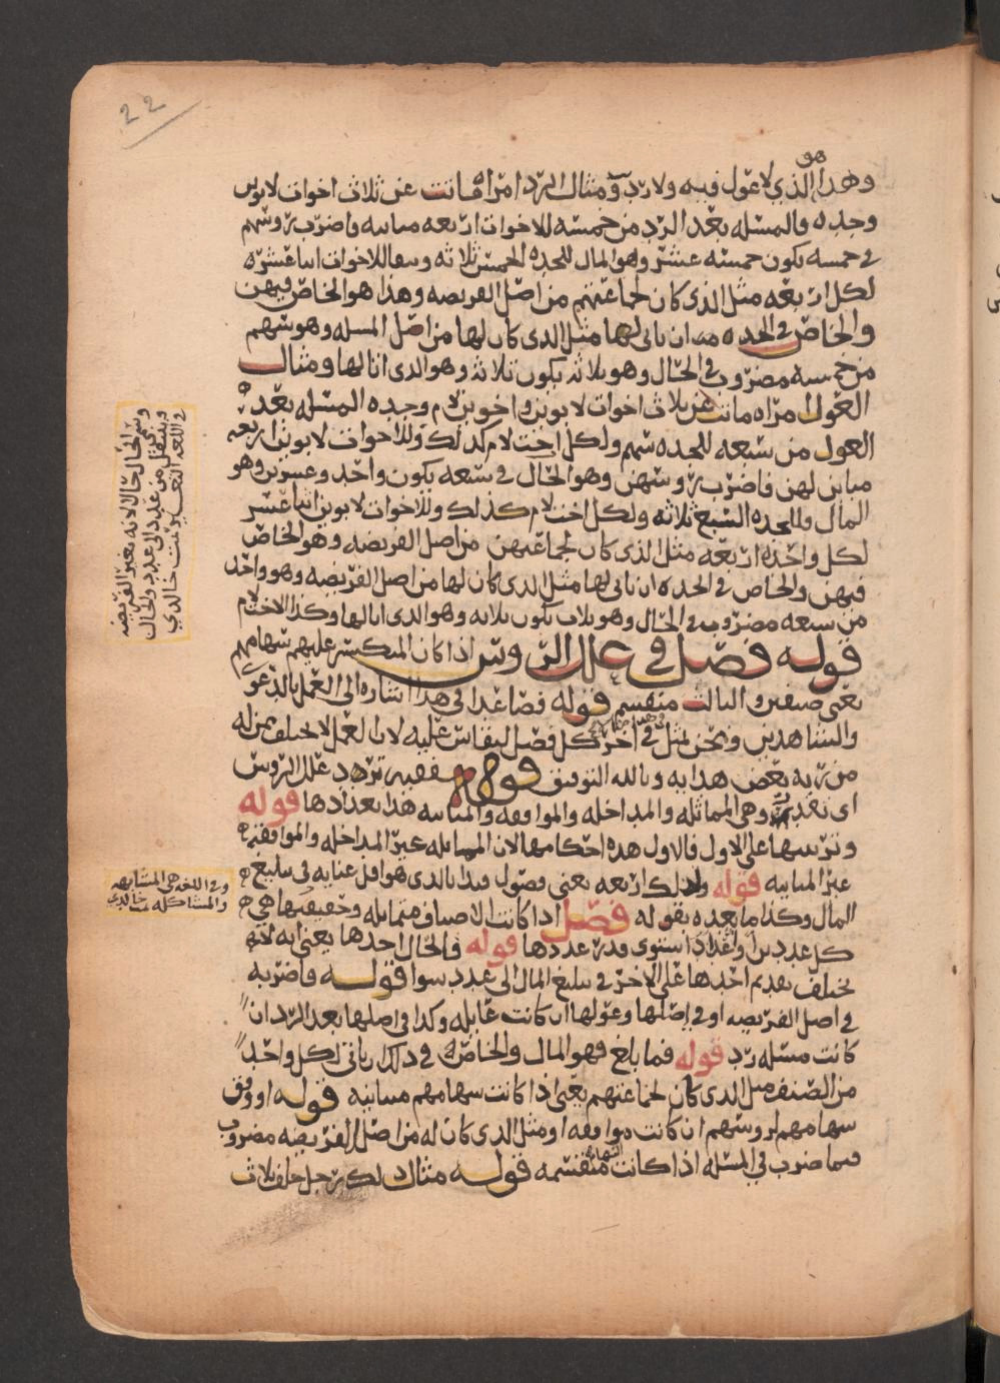 22
هو
وهذا الذي لا عول فيه ولا رد ومثال الرد امراة ماتت عن ثلاث اخوات لابوين
وجده فالمسله بعد الرد من خمسه للاخوات اربعه مباينه فاضرب روسهم
في خمسه يكون خمسه عشر وهو المال للجده الخمس ثلاثه وللاخوات اثنا عشره
لكل اربعه مثل الذي كان لجماعتهم من اصل الفريضه وهذا هو الخاص فيهن
والخاص في الجده ان ياتي لها مثل الذي كان لها من اصل المسله وهو سهم
من خمسه مضروب في الحال وهو ثلاثه يكون ثلاثه وهو الذي اتا لها ومثال
العول امراه ماتت عن ثلاث اخوات لابوين واخوين لام وجده المسله بعد
العول من سبعه للجده سهم ولكل اخت لام كذلك وللاخوات لابوين اربعه
مباين لهن فاضرب روسهن وهو الحال في سبعه يكون واحد وعشرين وهو
المال للجده السبع ثلاثه ولكل اخت لام كذلك وللاخوات لابوين اثنا عشر
لكل واحده اربعه مثل الذي كان لجماعتهن من اصل الفريضه وهو الخاص
فيهن والخاص في الجده ان ياتي لها مثل الذي كان لها من اصل الفريضه وهو واحد
من سبعه مضروب في الحال وهو ثلاث يكون ثلاثه وهو الذي اتا لها وكذا لاخت لام
قوله فصل في علل الروس اذا كان المنكسر عليهم سهامهم
يعني صنفين والثالث منقسم قوله فصاعدا في هذا اشاره الى العمل بالدعوى
والشاهدين ونحن نمثل في اخر كل فصل ليقاس عليه لان العمل لا يختلف
من به بعض هدايه وبالله التوفيق قوله
اي وهي المماثله والمداخله والموافقه والمباينه هذا تعدادها قوله
وترتيبها على الاول فالاول هذه احكامها لان المماثله غير المداخله والموافقه
غير المباينه قوله ولذلك اربعه يعني فصول فبدا بالذي هو اقل عنايه في تبليغ
المال وكذا ما بعده بقوله فصل اذا كانت الاصناف متماثله وحقيقتها هي
كل عددين او اعداد استوى قدر عددها قوله فالحال احدها يعني به لانه
يختلف تقديم احدها على الاخر في تبليغ المال الى عدد سوا قوله فاضربه
في اصل الفريضه او في اصلها وعولها ان كانت عايله وكذا في اصلها بعد الرد ان
كانت مسله رد قوله فما بلغ فهو المال والخاص في ذلك ان ياتي لكل واحد
من الصنف مثل الذي كان لجماعتهم يعني اذا كانت سهامهم مباينه قوله او وفق
سهامهم لروسهم ان كانت موافقه او مثل الذي كان له من اصل الفريضه مضروب
فيما ضرب في المسله اذا كانت منقسمه قوله مثال ذلك رجل خلف ثلاث
وسمي الحال حالا لانه يغير الفريضه
وينتقل من عدد الى عدد والحال
في اللغه
وفي اللغه هي المشابهه
والمشاكله